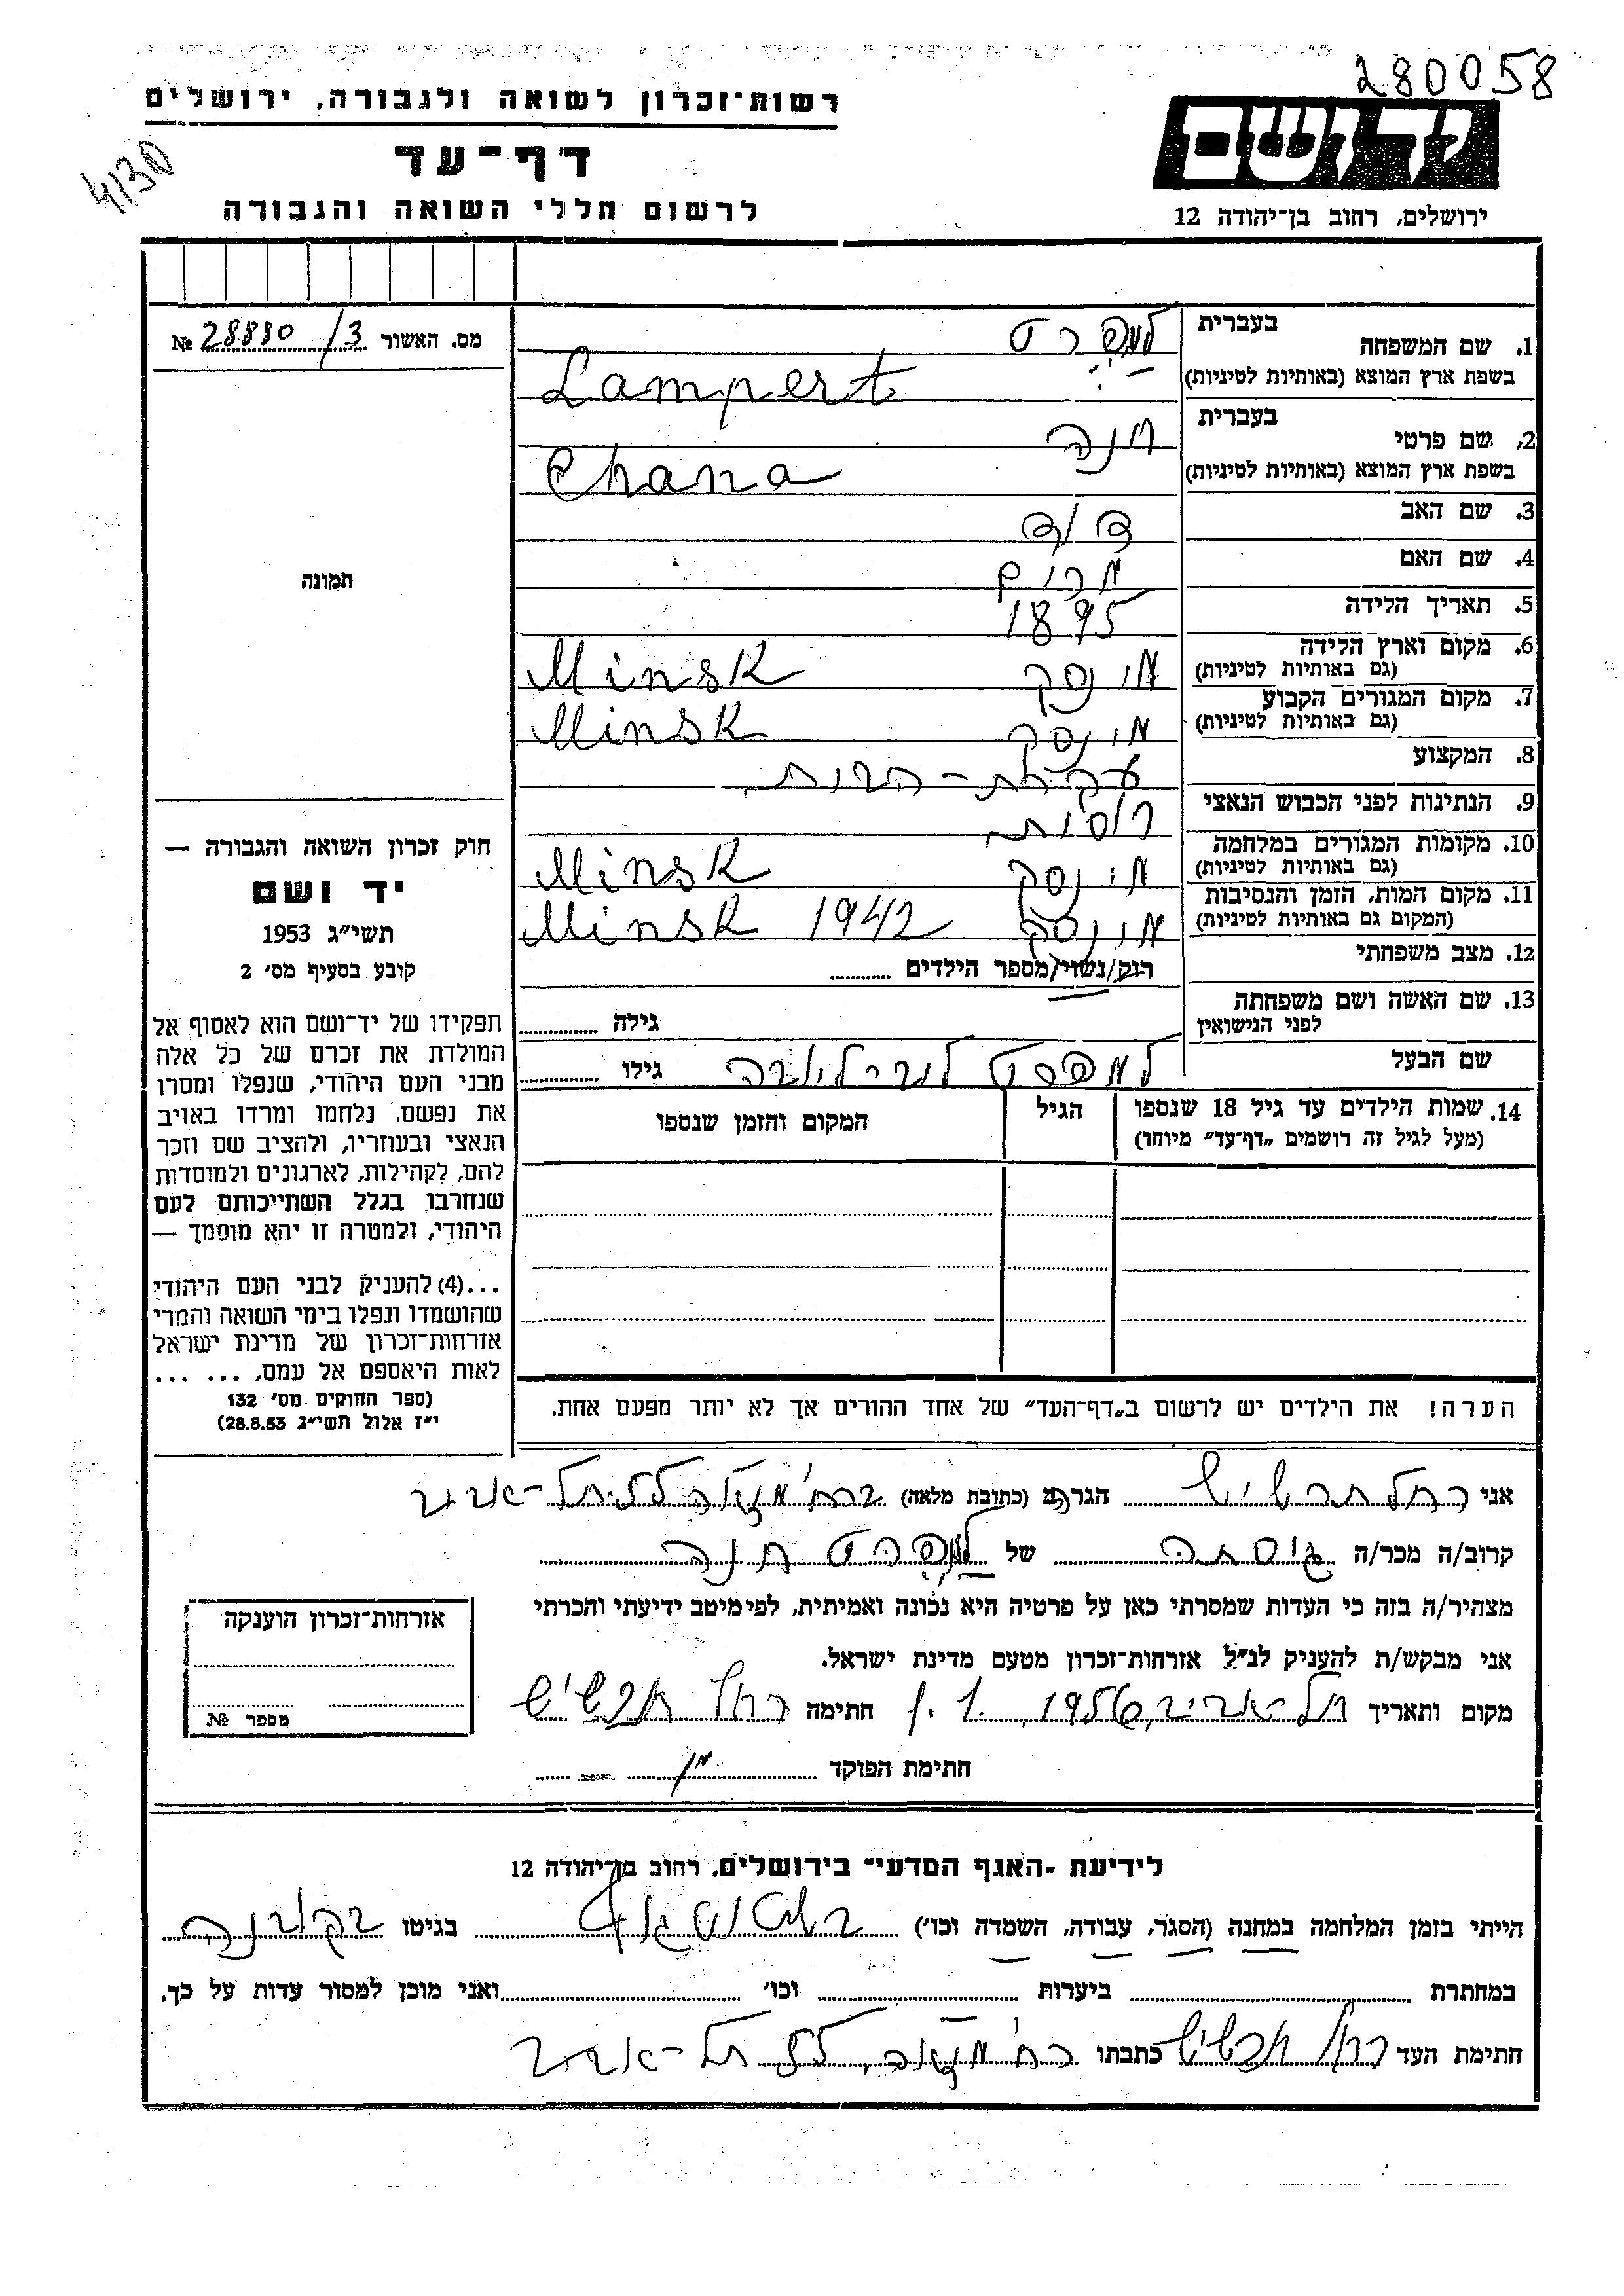 280058
רשות-זכרון לשואה ולגבורה, ירושלים
יד ושם
דף-עד
4130
לרשום חללי השואה והגבורה
ירושלים, רחוב בן-יהודה 12
מס. האשור № 28880/3
1. שם המשפחה בעברית למפרט
בשפת ארץ המוצא (באותיות לטיניות) Lampert
2. שם פרטי בעברית חנה
בשפת ארץ המוצא (באותיות לטיניות) Chana
3. שם האב דוד
4. שם האם מרים
5. תאריך הלידה 1895
6. מקום וארץ הלידה (גם באותיות לטיניות) מינסק Minsk
7. מקום המגורים הקבוע (גם באותיות לטיניות) מינסק Minsk
8. המקצוע עקרת-הבית
9. הנתינות לפני הכבוש הנאצי רוסית
10. מקומות המגורים במלחמה (גם באותיות לטיניות) מינסק Minsk
11. מקום המות, הזמן והנסיבות (המקום גם באותיות לטיניות) מינסק Minsk 1942
12. מצב משפחתי רוק/נשוי/מספר הילדים
13. שם האשה ושם משפחתה לפני הנישואין גילה
שם הבעל למפרט גילו
14. שמות הילדים עד גיל 18 שנספו הגיל המקום והזמן שנספו
(מעל לגיל זה רושמים „דף-עד" מיוחד)
הערה! את הילדים יש לרשום ב„דף-העד" של אחד ההורים אך לא יותר מפעם אחת.
תמונה
חוק זכרון השואה והגבורה —
יד ושם
תשי"ג 1953
קובע בסעיף מס' 2
תפקידו של יד-ושם הוא לאסוף אל
המולדת את זכרם של כל אלה
מבני העם היהודי, שנפלו ומסרו
את נפשם, נלחמו ומרדו באויב
הנאצי ובעוזריו, ולהציב שם וזכר
להם, לקהילות, לארגונים ולמוסדות
שנחרבו בגלל השתייכותם לעם
היהודי, ולמטרה זו יהא מוסמך —
...(4) להעניק לבני העם היהודי
שהושמדו ונפלו בימי השואה והמרי
אזרחות-זכרון של מדינת ישראל
לאות היאספם אל עמם, ... ...
(ספר החוקים מס' 132
י"ז אלול תשי"ג 28.8.53)
אני רחל תרשיש הגרה ב (כתובת מלאה) תל-אביב
קרוב/ה מכר/ה גיסתה של למפרט חנה
מצהיר/ה בזה כי העדות שמסרתי כאן על פרטיה היא נכונה ואמיתית, לפי מיטב ידיעתי והכרתי
אני מבקש/ת להעניק לנ"ל אזרחות-זכרון מטעם מדינת ישראל.
מקום ותאריך תל-אביב, 1956 חתימה רחל תרשיש
חתימת הפוקד
אזרחות-זכרון הוענקה
מספר №
לידיעת „האגף המדעי" בירושלים, רחוב בן-יהודה 12
הייתי בזמן המלחמה במחנה (הסגר, עבודה, השמדה וכו') בשטוטהוף בגיטו בקובנה
במחתרת ביערות וכו' ואני מוכן למסור עדות על כך.
חתימת העד רחל תרשיש כתבתו תל-אביב